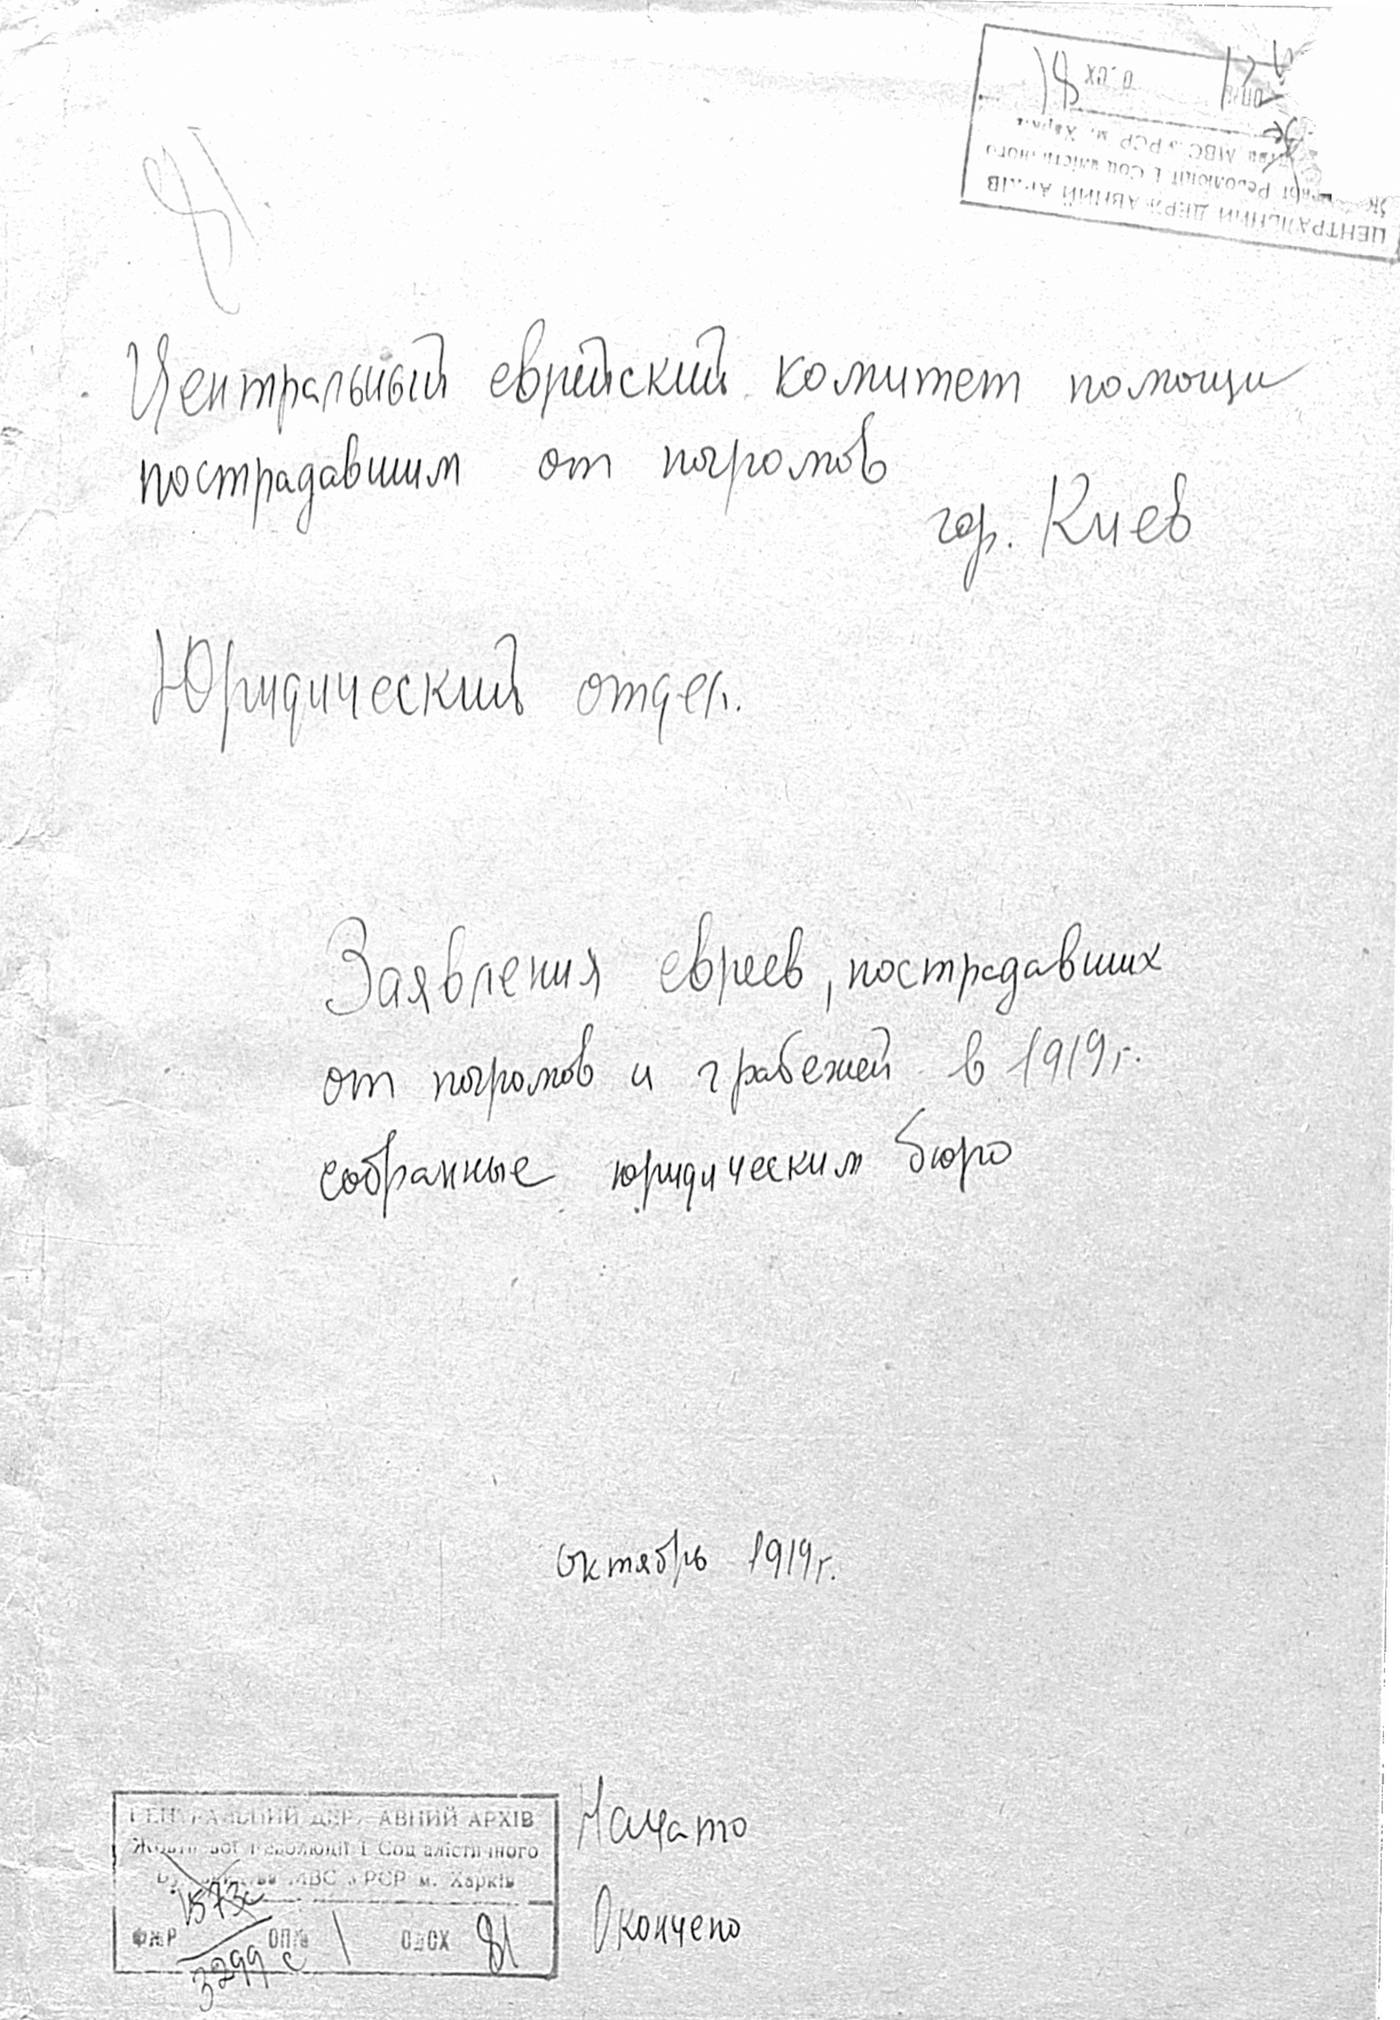 81
ЦЕНТРАЛЬНИЙ ДЕРЖАВНИЙ АРХІВ
Революції і Соціалістичного
МВС УРСР м. Харків
81
Центральный еврейский комитет помощи
пострадавшим от погромов
гор. Киев
Юридический отдел.
Заявления евреев, пострадавших
от погромов и грабежей в 1919 г.
собранные юридическим бюро
октябрь 1919 г.
ЦЕНТРАЛЬНИЙ ДЕРЖАВНИЙ АРХІВ
Жовтневої Революції і Соціалістичного
Будівництва МВС УРСР м. Харків
1573с
ФжР ОП№ 1 ОдСХ 81
3299 с
Начато
Окончено